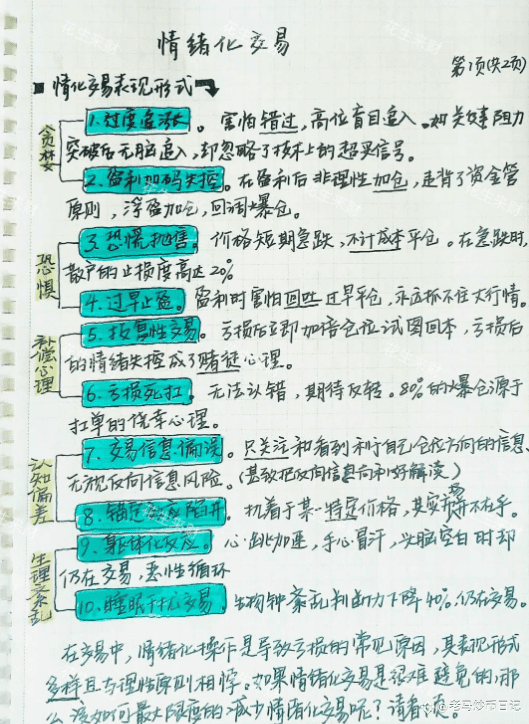 情绪化交易
第1页(共2页)
情化交易表现形式
贪婪
1.过度追涨。害怕错过,高位盲目追入。如关键阻力
突破后无脑追入,却忽略了技术上的超买信号。
2.盈利加码失控。在盈利后非理性加仓,违背了资金管
原则,浮盈加仓,回调爆仓。
恐惧
3.恐慌抛售。价格短期急跌,不计成本平仓。在急跌时,
散户的止损度高达20%
4.过早止盈。盈利时害怕回吐过早平仓,永远抓不住大行情。
补偿心理
5.报复性交易。亏损后立即加倍仓位试图回本,亏损后
的情绪失控成了赌徒心理。
6.亏损死扛。无法认错,期待反转。80%的爆仓源于
扛单的侥幸心理。
认知偏差
7.交易信息偏误。只关注和看到利于自己仓位方向的信息,
无视反向信息风险。(甚至把反向信息向利好解读)
8.锚定效应陷阱。执着于某一特定价格,其实市场并不在乎。
生理紊乱
9.躯体化反应。心跳加速,手心冒汗,头脑空白时却
仍在交易,恶性循环
10.睡眠干扰交易。生物钟紊乱判断力下降40%,仍在交易。
在交易中,情绪化操作是导致亏损的常见原因,其表现形式
多样且与理性原则相悖。如果情绪化交易是很难避免的,那
么该如何最大限度的减少情绪化交易呢?请看
@老马炒币日记
花生米财